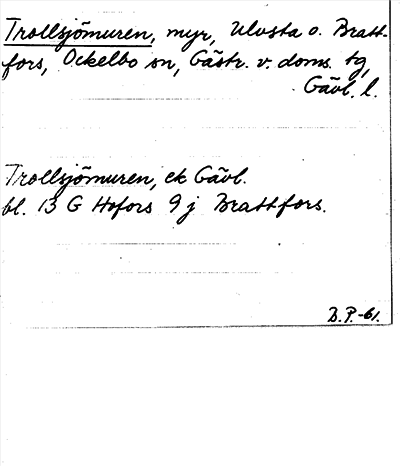 Trollsjömuren, myr, Ulvsta o. Bratt-
fors, Ockelbo sn, Gästr. v. doms. tg,
Gävl. l.
Trollsjömuren, ek Gävl.
bl. 13 G Hofors 9 j Brattfors.
B.P.-61.